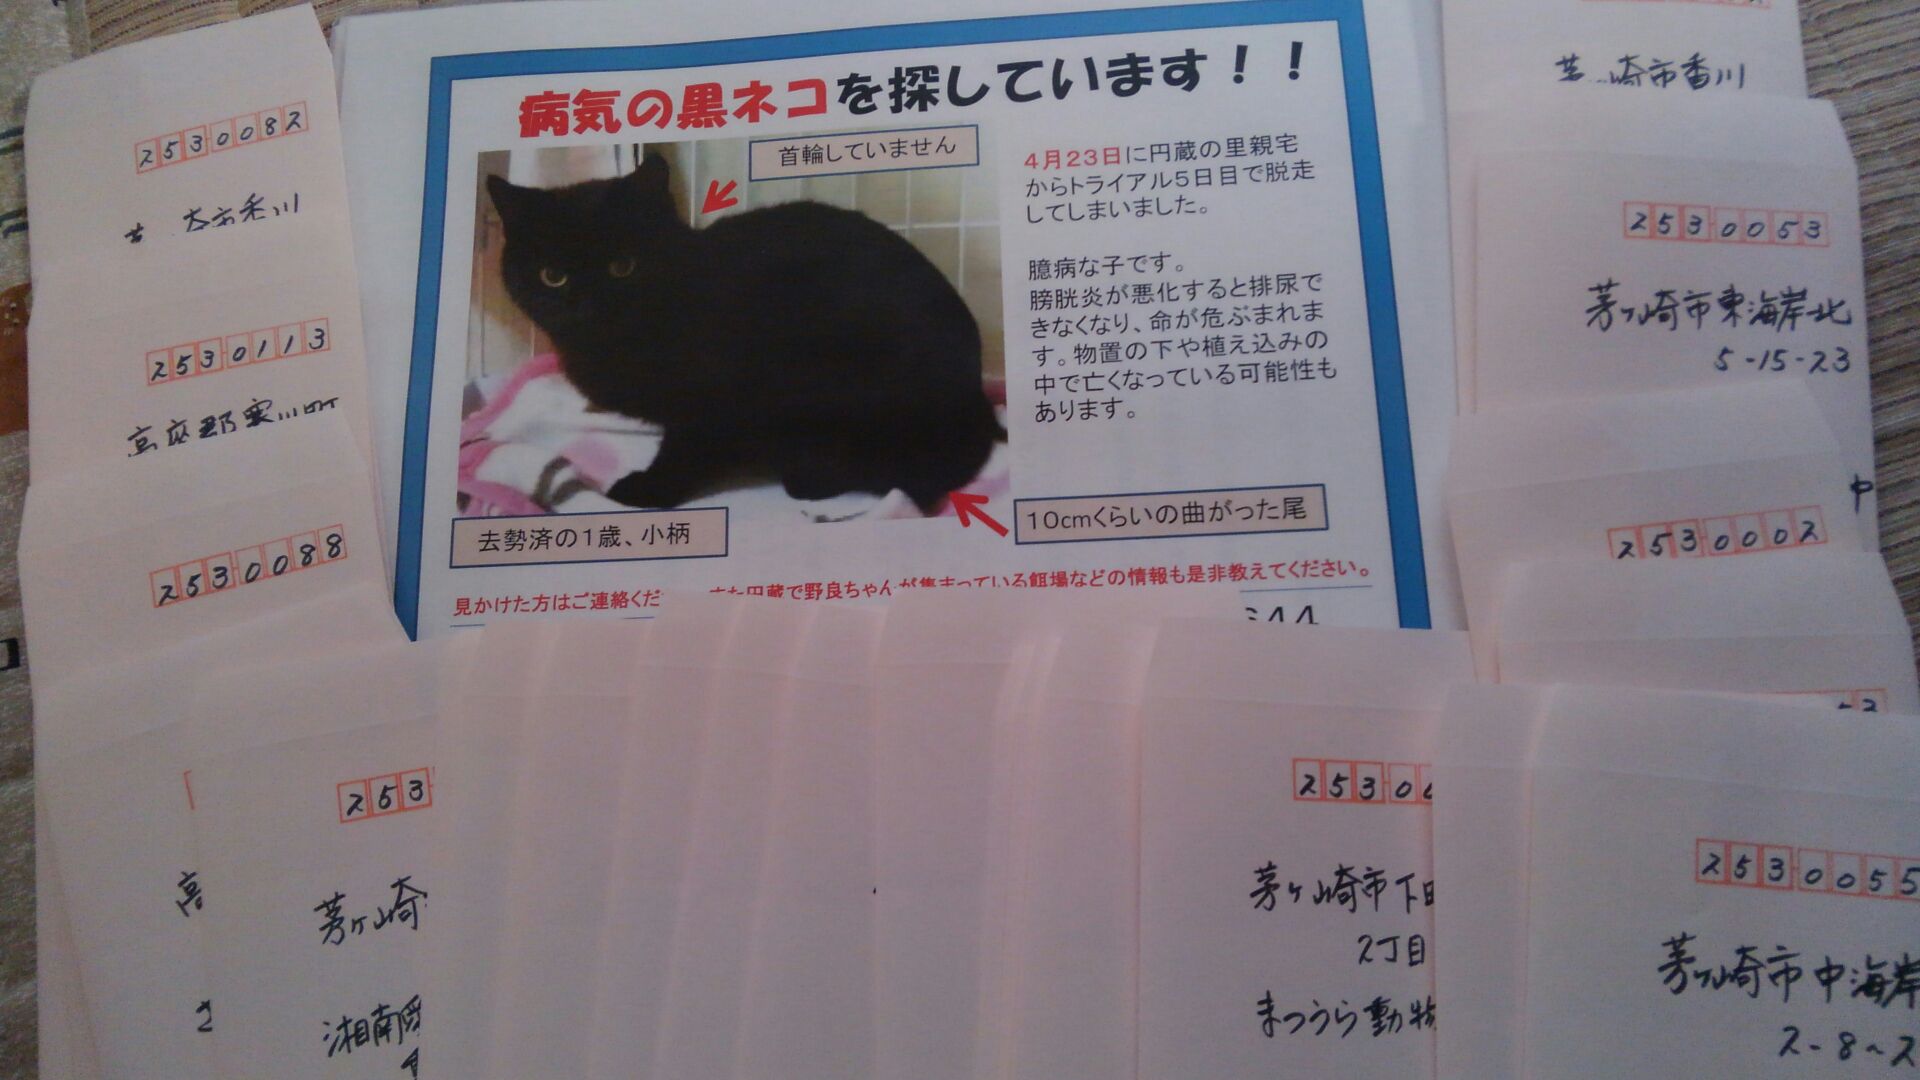 病気の黒ネコを探しています！！
首輪していません
4月23日に円蔵の里親宅
からトライアル5日目で脱走
してしまいました。
臆病な子です。
膀胱炎が悪化すると排尿で
きなくなり、命が危ぶまれま
す。物置の下や植え込みの
中で亡くなっている可能性も
あります。
10cmくらいの曲がった尾
去勢済の1歳、小柄
見かけた方はご連絡くだ
また円蔵で野良ちゃんが集まっている餌場などの情報も是非教えてください。
44
2530082
市香川
2530113
高座郡寒川町
2530088
253
高
茅ヶ崎
湘南
崎市香川
2530053
茅ヶ崎市東海岸北
5-15-23
中
2530002
53
2530
茅ヶ崎市下
2丁目
まつうら動物
2530055
茅ヶ崎市中海岸
2-8-2